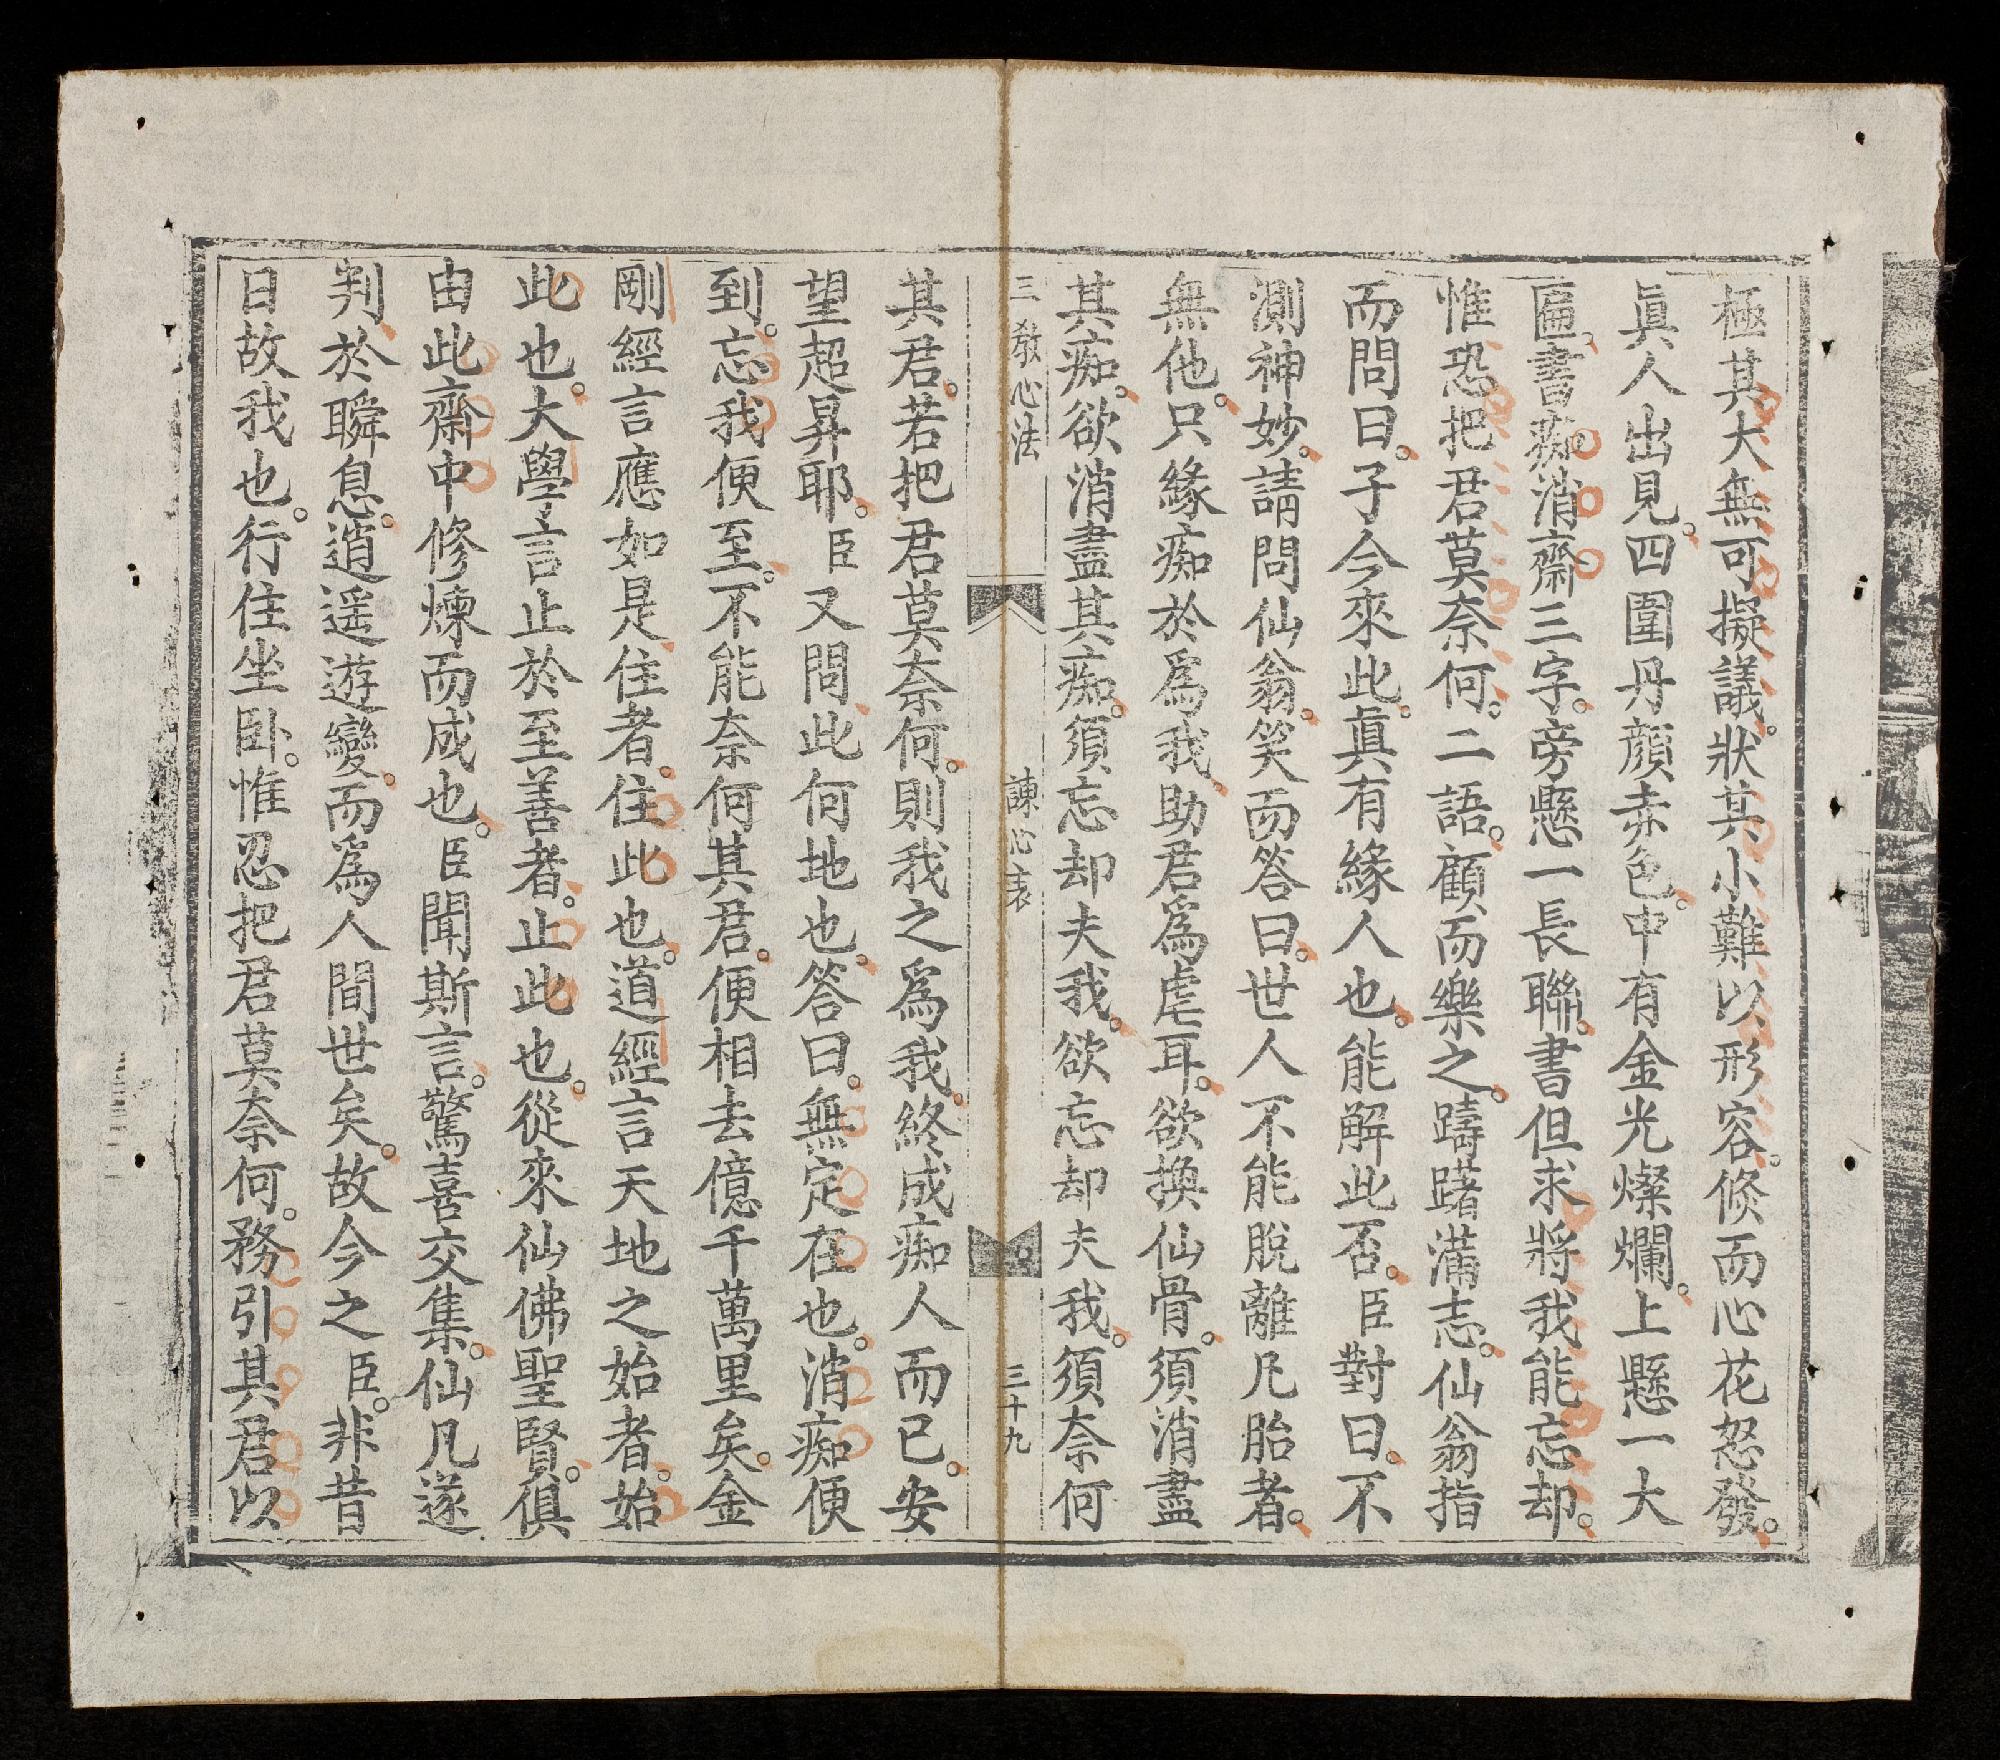 極其大無可擬議。狀其小難以形容。倏而心花怒發。
眞人出見。四圍丹顏赤色。中有金光燦爛。上懸一大
匾。書痴消齋三字。旁懸一長聯。書但求將我能忘却。
惟恐把君莫奈何。二語。顧而樂之。躊躇滿志。仙翁指
而問曰。子今來此。眞有緣人也。能解此否。臣對曰。不
測神妙。請問仙翁。笑而答曰。世人不能脫離凡胎者。
無他。只緣痴於爲我。助君爲虐耳。欲換仙骨。須消盡
其痴。欲消盡其痴。須忘却夫我。欲忘却夫我。須奈何
三教心法 諫心表 三十九
其君。若把君莫奈何。則我之爲我。終成痴人而已。安
望超昇耶。臣又問。此何地也。答曰。無定在也。消痴便
到。忘我便至。不能奈何其君。便相去億千萬里矣。金
剛經言應如是住者。住此也。道經言天地之始者。始
此也。大學言止於至善者。止此也。從來仙佛聖賢。俱
由此齋中修煉而成也。臣聞斯言。驚喜交集。仙凡遂
判於瞬息。逍遥遊變。而爲人間世矣。故今之臣。非昔
日故我也。行住坐卧。惟忍把君莫奈何。務引其君以